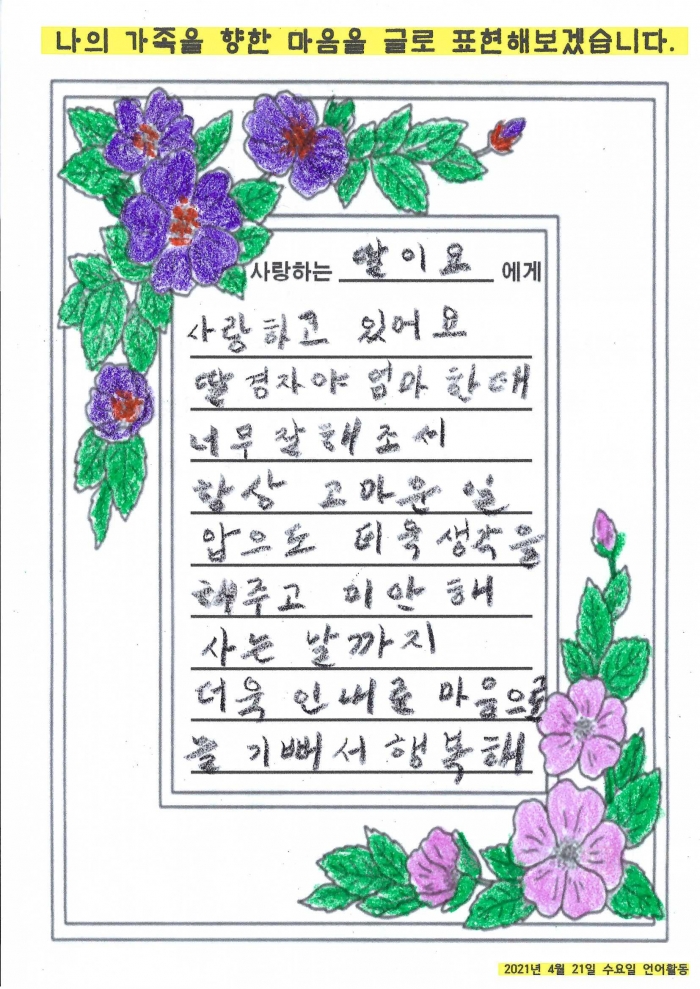 나의 가족을 향한 마음을 글로 표현해보겠습니다.
사랑하는 딸이요 에게
사랑하고 있어요
딸 경자야 엄마 한대
너무 잘해조서
항상 고마운 일
압으도 더욱 생각을
해주고 미안해
사는 날까지
더욱 인내로 마음으로
늘 기뻐서 행복해
2021년 4월 21일 수요일 언어활동